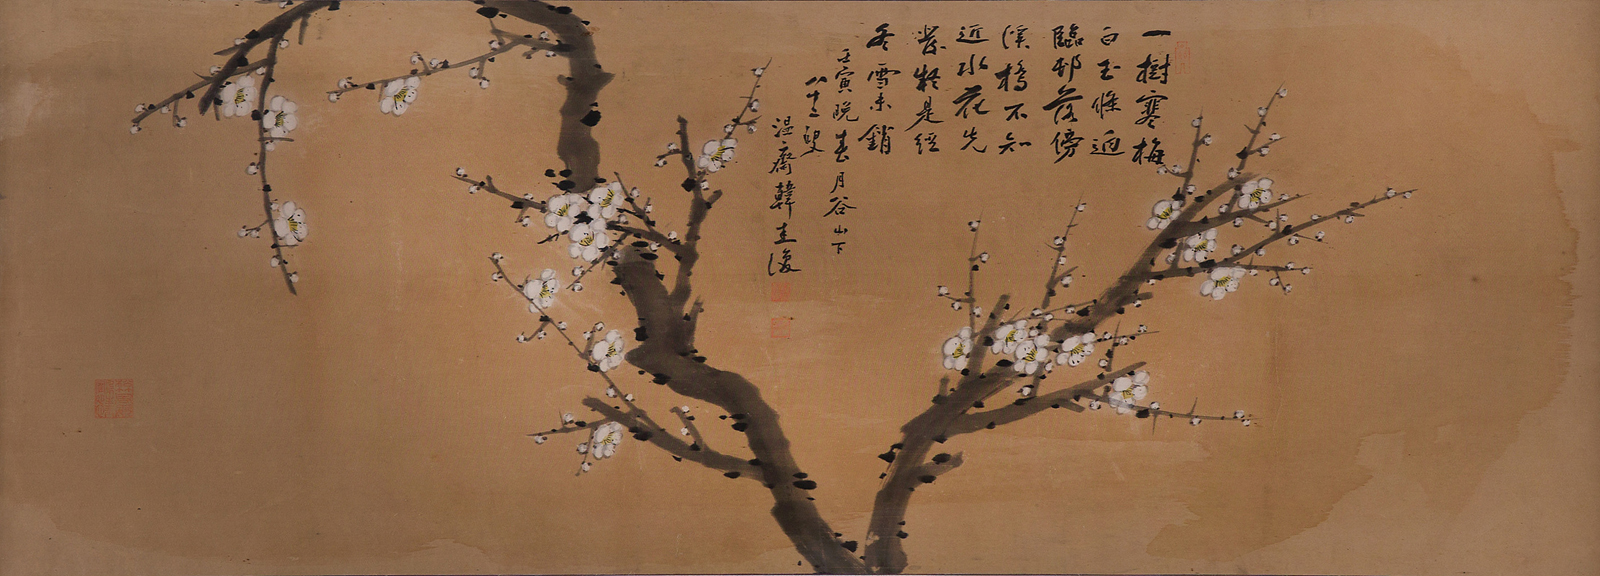 一樹寒梅
白玉條逈
臨邨落傍
溪橋不知
近水花先
發疑是經
冬雪未銷
壬寅晩春月谷山下
八十二叟
温齋韓圭復